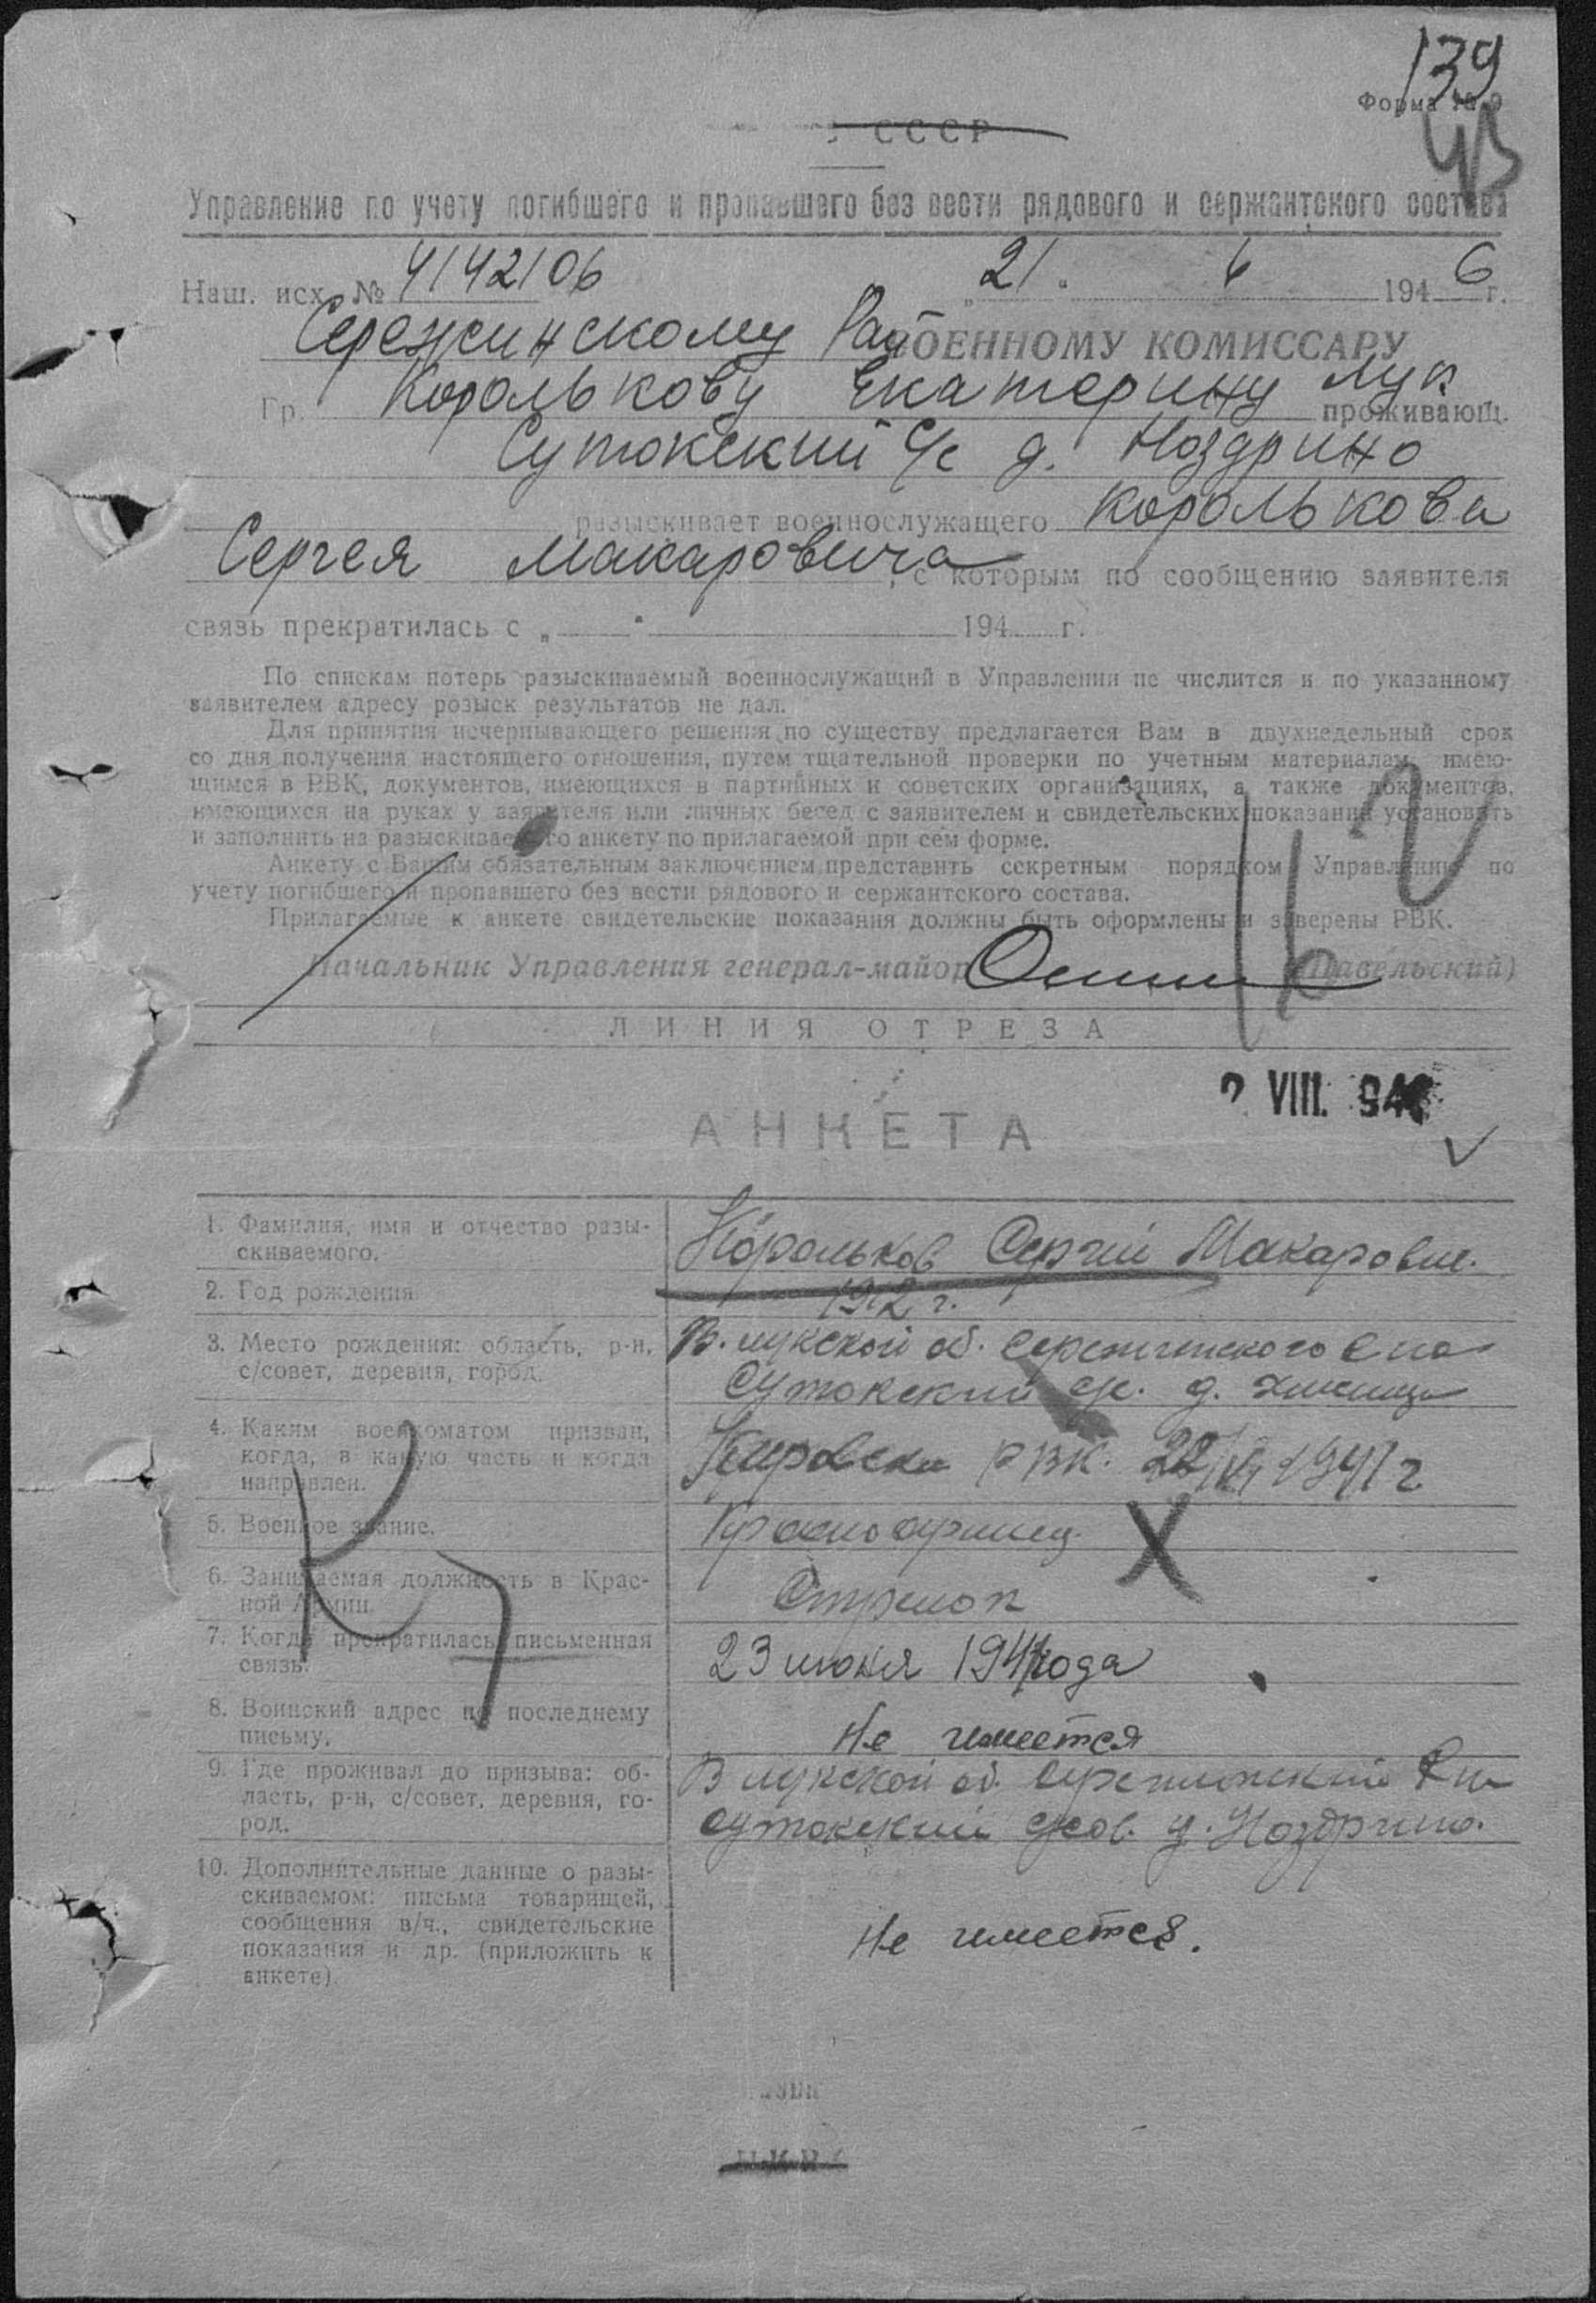 139
Форма № 9
СССР
Управление по учету погибшего и пропавшего без вести рядового и сержантского состава
Наш. исх. № 4142106 „21“ 6 1946 г.
Сережинскому Рай ВОЕННОМУ КОМИССАРУ
Гр. Королькову Екатерину Лук проживающ.
Сутокский с/с д. Ноздрино
разыскивает военнослужащего Королькова
Сергея Макаровича, с которым по сообщению заявителя
связь прекратилась с „ “ 194 г.
По спискам потерь разыскиваемый военнослужащий в Управлении не числится и по указанному
заявителем адресу розыск результатов не дал.
Для принятия исчерпывающего решения по существу предлагается Вам в двухнедельный срок
со дня получения настоящего отношения, путем тщательной проверки по учетным материалам, имею-
щимся в РВК, документов, имеющихся в партийных и советских организациях, а также документов,
имеющихся на руках у заявителя или личных бесед с заявителем и свидетельских показаний установить
и заполнить на разыскиваемого анкету по прилагаемой при сем форме.
Анкету с Вашим обязательным заключением представить секретным порядком Управлению по
учету погибшего и пропавшего без вести рядового и сержантского состава.
Прилагаемые к анкете свидетельские показания должны быть оформлены и заверены РВК.
Начальник Управления генерал-майор (Шавельский)
ЛИНИЯ ОТРЕЗА
2 VIII. 946
АНКЕТА
1. Фамилия, имя и отчество разы-
скиваемого.
Корольков Сергей Макарович.
2. Год рождения
1912 г.
3. Место рождения: область, р-н,
с/совет, деревня, город.
В. лукской об. Сережинского
Сутокский с/с. д.
4. Каким военкоматом призван,
когда, в какую часть и когда
направлен.
Кировски РВК. 22/VI 1941 г
5. Военное звание.
Красноармеец
6. Занимаемая должность в Крас-
ной Армии.
Стрелок
7. Когда прекратилась письменная
связь.
23 июня 1941 года
8. Воинский адрес по последнему
письму.
Не имеется
9. Где проживал до призыва: об-
ласть, р-н, с/совет, деревня, го-
род.
В лукской об. Сережинский
Сутокский с/сов. д. Ноздрино.
10. Дополнительные данные о разы-
скиваемом: письма товарищей,
сообщения в/ч., свидетельские
показания и др. (приложить к
анкете).
Не имеется.